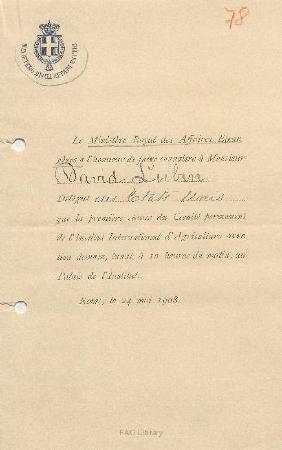 78
MINISTERO DEGLI AFFARI ESTERI
Le Ministre Royal des Affaires Etran-
gères a l'honneur de faire connaître à Monsieur
David Lubin
Délégué des Etats Unis
que la première séance du Comité permanent
de l'Institut International d'Agriculture aura
lieu demain, lundi, à 10 heures du matin, au
Palais de l'Institut.
Rome, le 24 mai 1908.
FAO Library